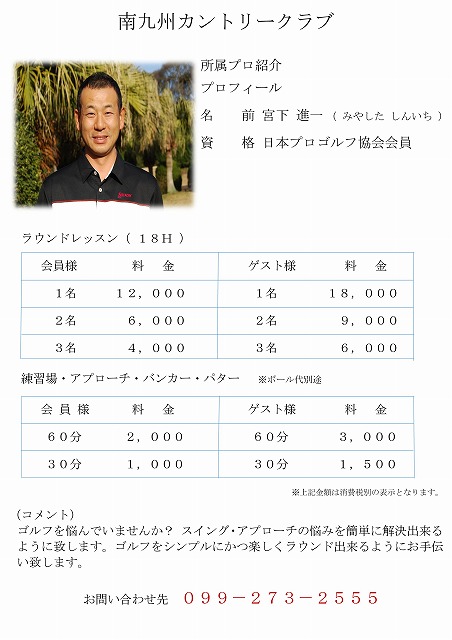 南九州カントリークラブ
所属プロ紹介
プロフィール
名　　前 宮下 進一 （ みやした しんいち ）
資　　格 日本プロゴルフ協会会員
ラウンドレッスン（ １８Ｈ ）
会員様　料　金　ゲスト様　料　金
１名　１２，０００　１名　１８，０００
２名　６，０００　２名　９，０００
３名　４，０００　３名　６，０００
練習場・アプローチ・バンカー・パター　※ボール代別途
会 員 様　料　金　ゲスト様　料　金
６０分　２，０００　６０分　３，０００
３０分　１，０００　３０分　１，５００
※上記金額は消費税別の表示となります。
（コメント）
ゴルフを悩んでいませんか？ スイング・アプローチの悩みを簡単に解決出来る
ように致します。ゴルフをシンプルにかつ楽しくラウンド出来るようにお手伝
い致します。
お問い合わせ先　０９９－２７３－２５５５